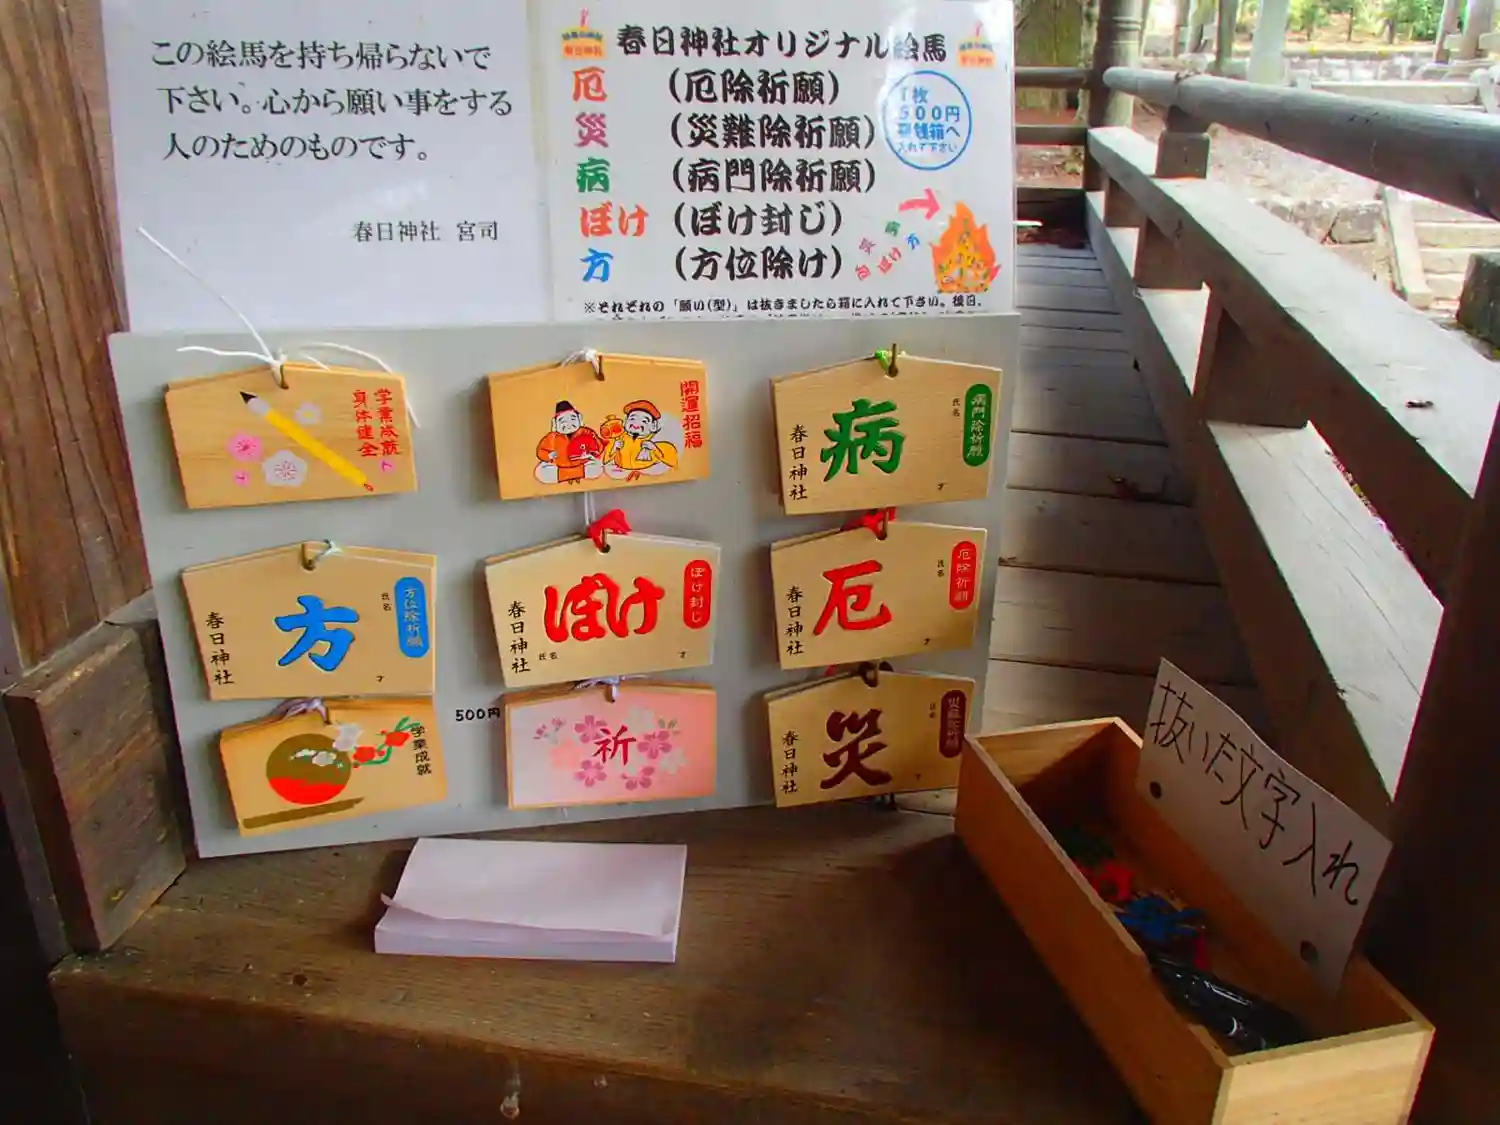 この絵馬を持ち帰らないで
下さい。心から願い事をする
人のためのものです。
春日神社 宮司
春日神社オリジナル絵馬
厄 (厄除祈願)
災 (災難除祈願)
病 (病門除祈願)
ぼけ (ぼけ封じ)
方 (方位除け)
1枚
500円
賽銭箱へ
入れて下さい
災 病
ぼけ 方
※それぞれの「願い(型)」は抜きましたら箱に入れて下さい。後日、
学業成就
身体健全
開運招福
病門除祈願
氏名
病
春日神社
才
方位除祈願
氏名
方
春日神社
才
ぼけ封じ
ぼけ
春日神社
氏名
才
厄除祈願
氏名
厄
春日神社
才
学業成就
500円
祈
災難除祈願
氏名
災
春日神社
才
抜いた文字入れ